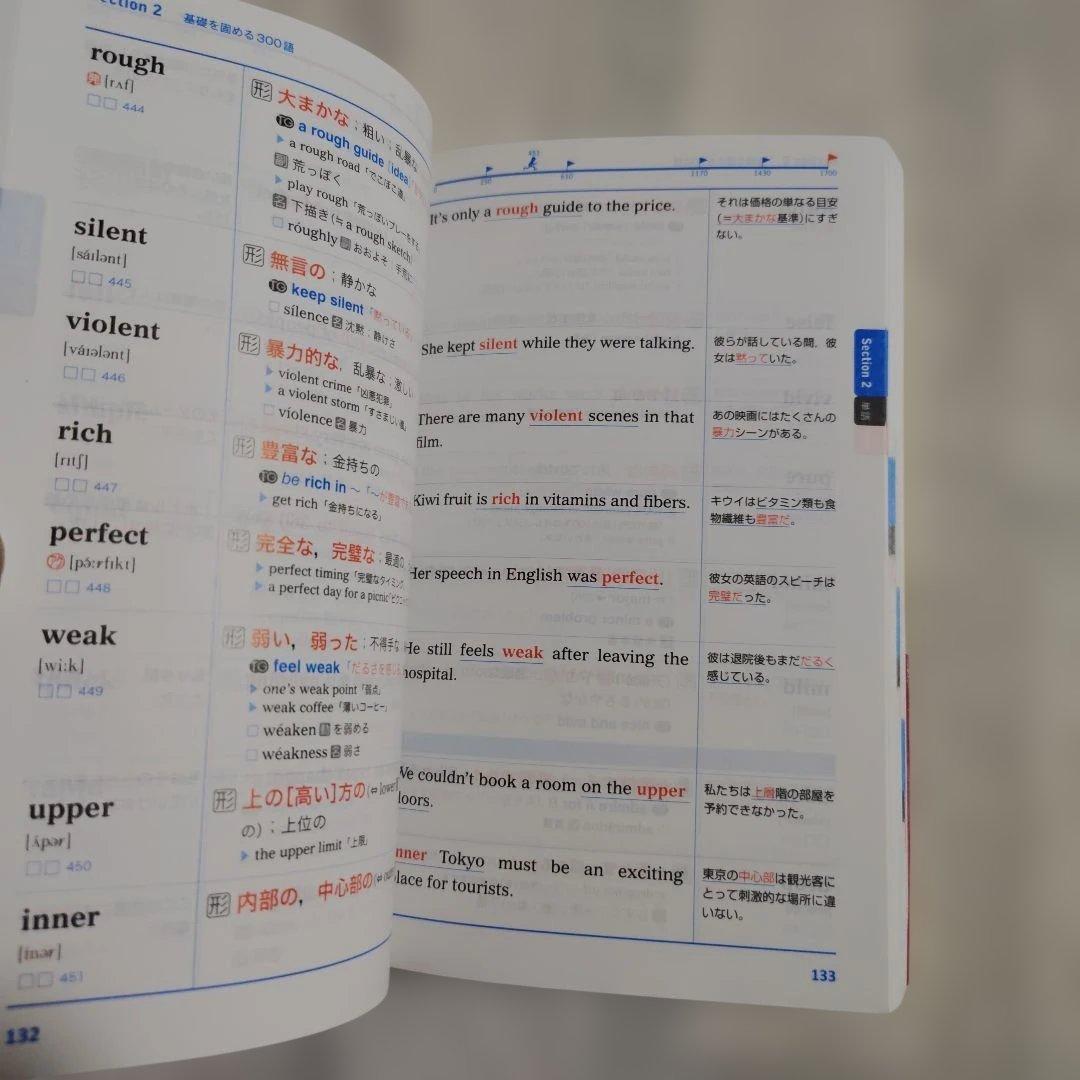 Section 2 基礎を固める300語
rough
[rʌf]
444
形 大まかな；粗い；乱暴な
TG a rough guide [idea]
a rough road「でこぼこ道」
副 荒っぽく
play rough「荒っぽいプレーをする」
名 下描き(≒a rough sketch)
róughly 副 おおよそ
silent
[sáɪlənt]
445
形 無言の；静かな
TG keep silent「黙っている」
sílence 名 沈黙；静けさ
violent
[váɪələnt]
446
形 暴力的な，乱暴な；激しい
violent crime「凶悪犯罪」
a violent storm「すさまじい嵐」
víolence 名 暴力
rich
[rɪtʃ]
447
形 豊富な；金持ちの
TG be rich in ～「～が豊富で
get rich「金持ちになる」
perfect
[pə́ːrfɪkt]
448
形 完全な，完璧な；最適の
perfect timing「完璧なタイミング
a perfect day for a picnic「ピクニ
weak
[wiːk]
449
形 弱い，弱った；不得手な
TG feel weak「だるさを感じる
one's weak point「弱点」
weak coffee「薄いコーヒー」
wéaken 動 を弱める
wéakness 名 弱さ
upper
[ʌ́pər]
450
形 上の[高い]方の(⇔lower
の)；上位の
the upper limit「上限」
inner
[ínər]
451
形 内部の，中心部の(⇔out
132
451
250
610
1170
1430
1700
It's only a rough guide to the price.
それは価格の単なる目安
(＝大まかな基準)にすぎ
ない。
She kept silent while they were talking.
彼らが話している間，彼
女は黙っていた。
There are many violent scenes in that
film.
あの映画にはたくさんの
暴力シーンがある。
Kiwi fruit is rich in vitamins and fibers.
キウイはビタミン類も食
物繊維も豊富だ。
Her speech in English was perfect.
彼女の英語のスピーチは
完璧だった。
He still feels weak after leaving the
hospital.
彼は退院後もまだだるく
感じている。
We couldn't book a room on the upper
loors.
私たちは上層階の部屋を
予約できなかった。
nner Tokyo must be an exciting
lace for tourists.
東京の中心部は観光客に
とって刺激的な場所に違
いない。
Section 2
単語
133